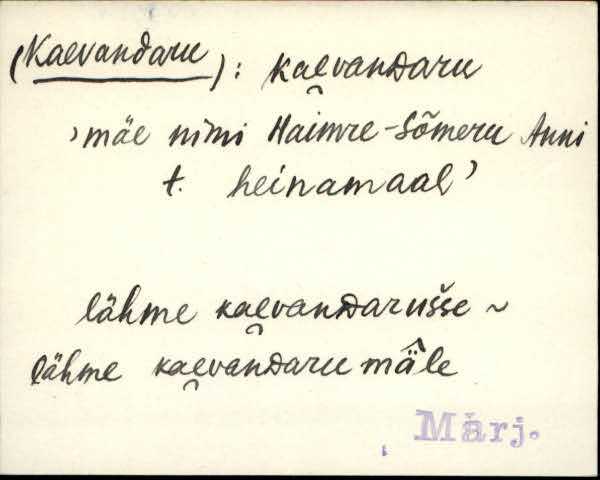 (Kaevandaru): kae̯vanᴅaru
'mäe nimi Haimre-Sõmeru Anni
t. heinamaal'
lähme kae̯vanᴅarušse ~
lähme kae̯vanᴅaru mä̂le
Märj.